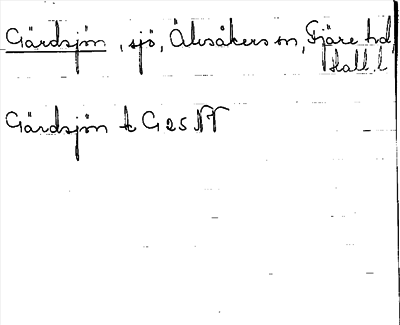 Gärdsjön, sjö, Älvsåkers sn, Fjäre hd,
Hall. l
Gärdsjön k G 25 NV